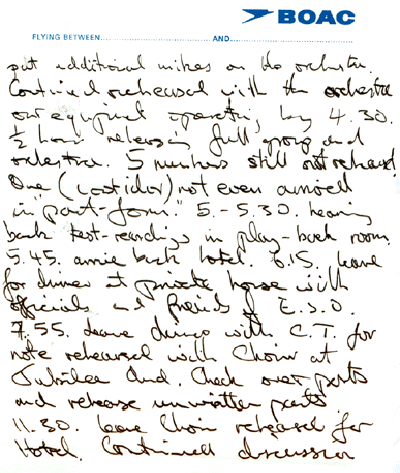 BOAC
FLYING BETWEEN.............................AND.............................
out additional mikes on the orchestra.
Continued rehearsal with the orchestra
our equipment operating by 4.30.
½ hour rehearsing full group and
orchestra. 5 numbers still not rehearsed
One (corridor) not even arrived
in "part-form." 5.-5.30. hearing
back test-recordings in play-back room
5.45. arrive back hotel. 6.15. leave
for dinner at private house with
officials and friends of E.S.O.
7.55. Leave dinner with C.T. for
note rehearsal with Choir at
Jubilee Aud. Check over parts
and rehearse unwritten parts
11.30. Leave Choir rehearsal for
Hotel. Continued discussion